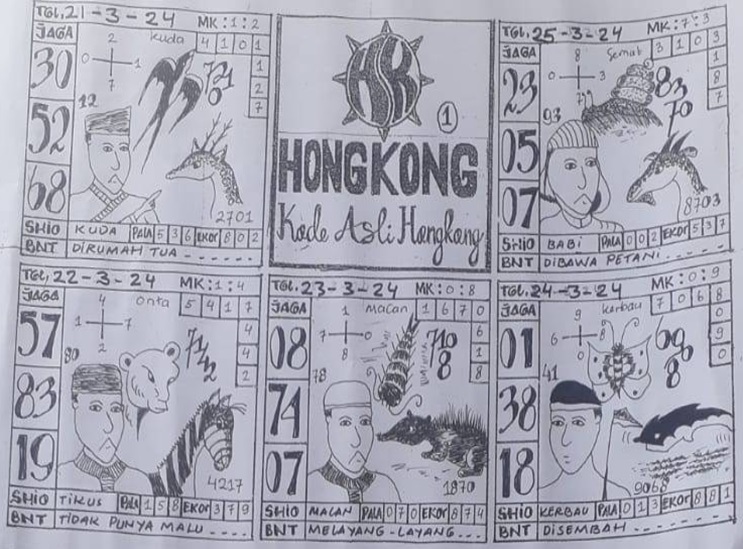 TGL, 21-3-24 MK:1:2
JAGA
kuda 4 1 0 1
1
2
7
2
0 1
7
30
52
68
12
721
0
2701
SHIO KUDA PALA 5 3 6 EKOR 8 0 2
BNT DIRUMAH TUA - - - - - -
HSK
1
HONGKONG
Kode Asli Hongkong
TGL, 25-3-24 MK:7:3
JAGA
Semut 3 1 0 3
1
8
7
8
0 3
7
23
05
07
93
83
70
8703
SHIO BABI PALA 0 0 2 EKOR 5 3 7
BNT DIBAWA PETANI - - - - -
TGL, 22-3-24 MK:1:4
JAGA
Onta 5 4 1 7
4
4
2
4
1 7
2
57
83
19
80
714
2
4217
SHIO TIKUS PALA 1 5 8 EKOR 3 7 9
BNT TIDAK PUNYA MALU - - - -
TGL, 23-3-24 MK:0:8
JAGA
Macan 1 6 7 0
6
1
8
1
7 0
8
08
74
07
78
710
8
1870
SHIO MACAN PALA 0 7 0 EKOR 8 7 4
BNT MELAYANG-LAYANG...
TGL, 24-3-24 MK:0:9
JAGA
Kerbau 7 0 6 8
0
9
0
9
6 8
0
01
38
18
41
8
9068
SHIO KERBAU PALA 0 1 3 EKOR 8 8 1
BNT DISEMBAH - - - - - -